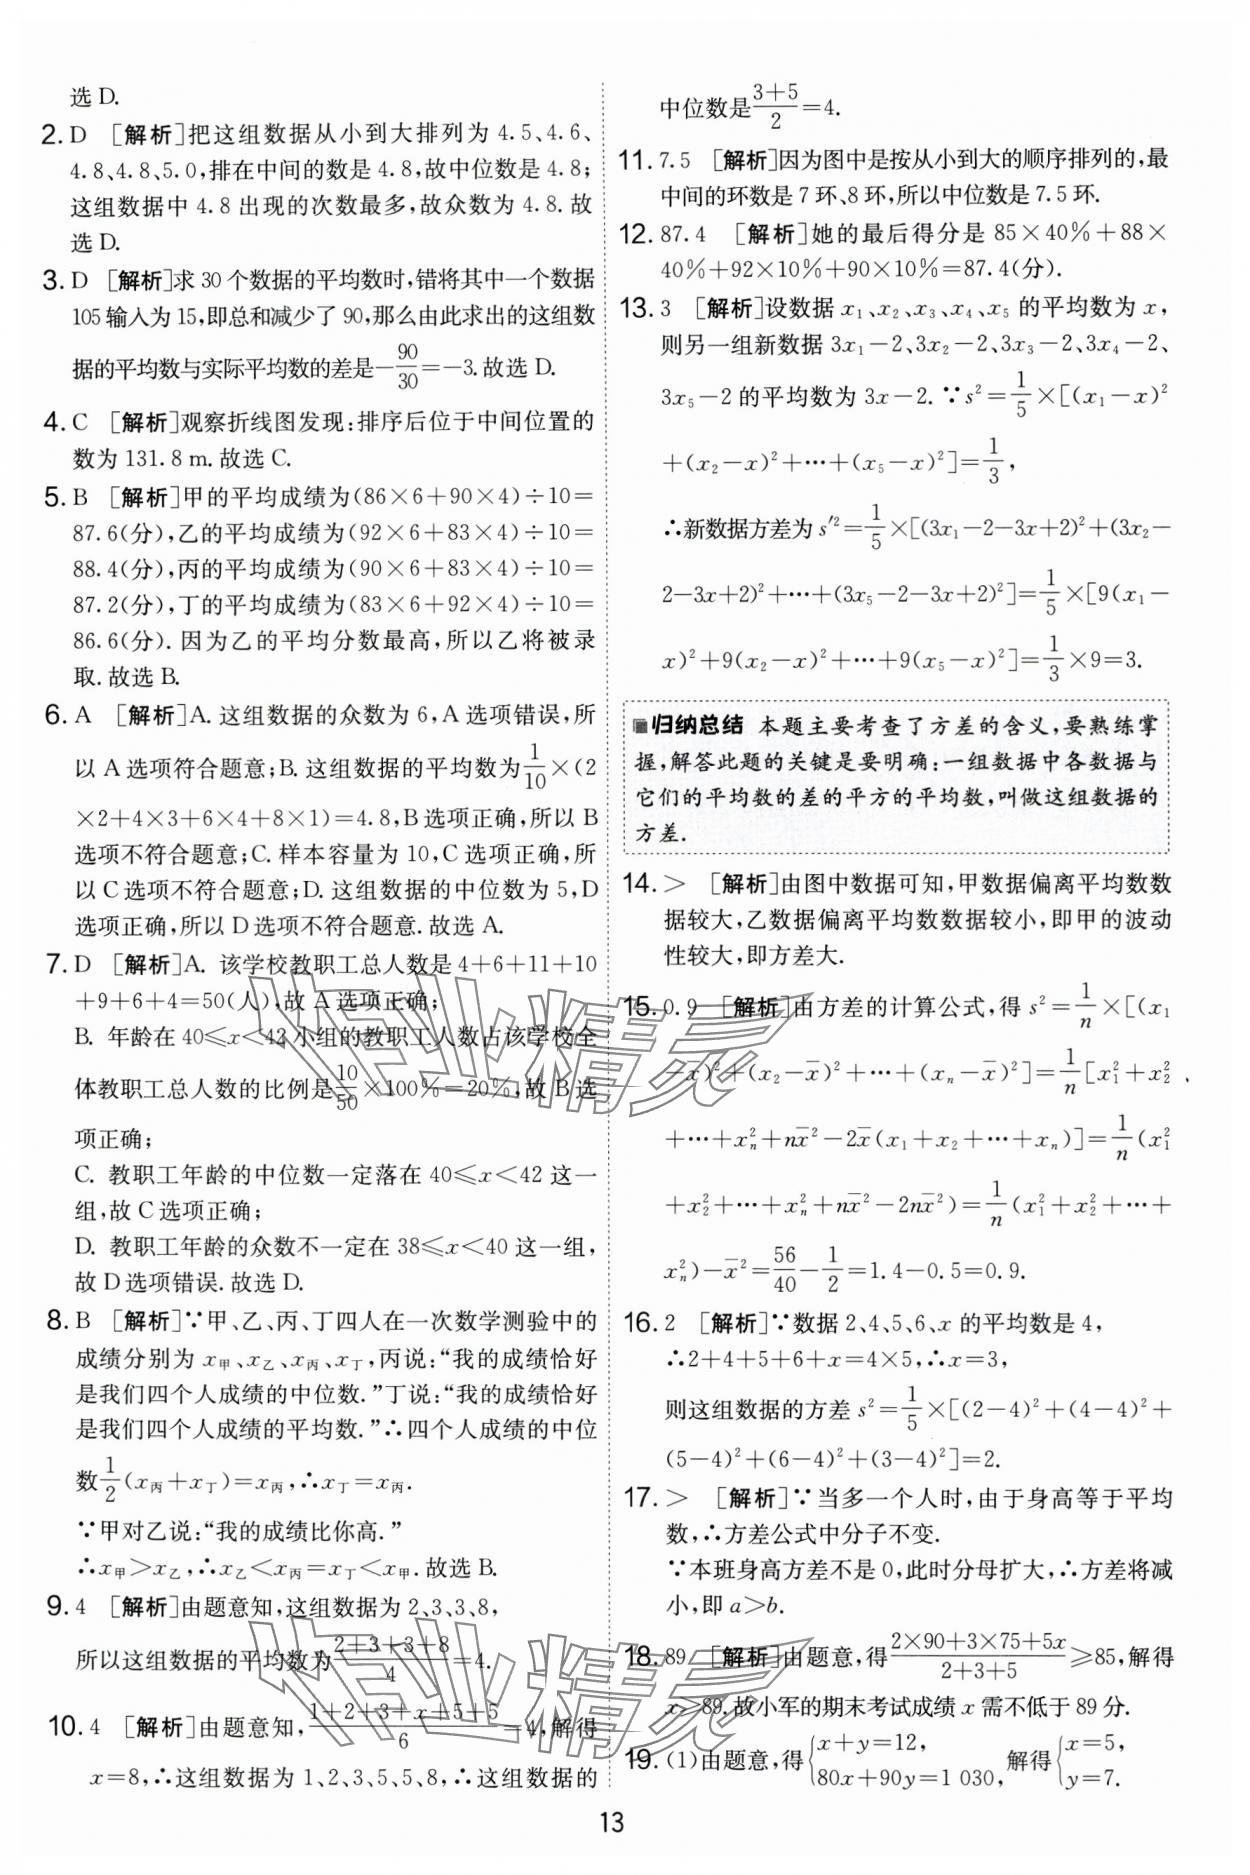 选 D.
2. D [解析]把这组数据从小到大排列为 4.5、4.6、
4.8、4.8、5.0,排在中间的数是 4.8,故中位数是 4.8;
这组数据中 4.8 出现的次数最多,故众数为 4.8.故
选 D.
3. D [解析]求 30 个数据的平均数时,错将其中一个数据
105 输入为 15,即总和减少了 90,那么由此求出的这组数
据的平均数与实际平均数的差是-90/30=-3.故选 D.
4. C [解析]观察折线图发现:排序后位于中间位置的
数为 131.8 m.故选 C.
5. B [解析]甲的平均成绩为(86×6+90×4)÷10=
87.6(分),乙的平均成绩为(92×6+83×4)÷10=
88.4(分),丙的平均成绩为(90×6+83×4)÷10=
87.2(分),丁的平均成绩为(83×6+92×4)÷10=
86.6(分).因为乙的平均分数最高,所以乙将被录
取.故选 B.
6. A [解析]A.这组数据的众数为 6,A 选项错误,所
以 A 选项符合题意;B.这组数据的平均数为1/10×(2
×2+4×3+6×4+8×1)=4.8,B 选项正确,所以 B
选项不符合题意;C.样本容量为 10,C 选项正确,所
以 C 选项不符合题意;D.这组数据的中位数为 5,D
选项正确,所以 D 选项不符合题意.故选 A.
7. D [解析]A. 该学校教职工总人数是 4+6+11+10
+9+6+4=50(人),故 A 选项正确;
B. 年龄在 40≤x<42 小组的教职工人数占该学校全
体教职工总人数的比例是10/50×100%=20%,故 B 选
项正确;
C. 教职工年龄的中位数一定落在 40≤x<42 这一
组,故 C 选项正确;
D. 教职工年龄的众数不一定在 38≤x<40 这一组,
故 D 选项错误.故选 D.
8. B [解析]∵甲、乙、丙、丁四人在一次数学测验中的
成绩分别为 x甲、x乙、x丙、x丁,丙说:“我的成绩恰好
是我们四个人成绩的中位数.”丁说:“我的成绩恰好
是我们四个人成绩的平均数.”∴四个人成绩的中位
数1/2(x丙+x丁)=x丙,∴x丁=x丙.
∵甲对乙说:“我的成绩比你高.”
∴x甲>x乙,∴x乙<x丙=x丁<x甲.故选 B.
9. 4 [解析]由题意知,这组数据为 2、3、3、8,
所以这组数据的平均数为(2+3+3+8)/4=4.
10. 4 [解析]由题意知,(1+2+3+x+5+5)/6=4,解得
x=8,∴这组数据为 1、2、3、5、5、8,∴这组数据的
中位数是(3+5)/2=4.
11. 7.5 [解析]因为图中是按从小到大的顺序排列的,最
中间的环数是 7 环、8 环,所以中位数是 7.5 环.
12. 87.4 [解析]她的最后得分是 85×40%+88×
40%+92×10%+90×10%=87.4(分).
13. 3 [解析]设数据 x₁、x₂、x₃、x₄、x₅ 的平均数为 x,
则另一组新数据 3x₁-2、3x₂-2、3x₃-2、3x₄-2、
3x₅-2 的平均数为 3x-2.∵s²=1/5×[(x₁-x)²
+(x₂-x)²+⋯+(x₅-x)²]=1/3,
∴新数据方差为 s′²=1/5×[(3x₁-2-3x+2)²+(3x₂-
2-3x+2)²+⋯+(3x₅-2-3x+2)²]=1/5×[9(x₁-
x)²+9(x₂-x)²+⋯+9(x₅-x)²]=1/3×9=3.
归纳总结 本题主要考查了方差的含义,要熟练掌
握,解答此题的关键是要明确:一组数据中各数据与
它们的平均数的差的平方的平均数,叫做这组数据的
方差.
14. > [解析]由图中数据可知,甲数据偏离平均数数
据较大,乙数据偏离平均数数据较小,即甲的波动
性较大,即方差大.
15. 0.9 [解析]由方差的计算公式,得 s²=1/n×[(x₁
-x̄)²+(x₂-x̄)²+⋯+(xₙ-x̄)²]=1/n[x₁²+x₂²
+⋯+xₙ²+nx̄²-2x̄(x₁+x₂+⋯+xₙ)]=1/n(x₁²
+x₂²+⋯+xₙ²+nx̄²-2nx̄²)=1/n(x₁²+x₂²+⋯+
xₙ²)-x̄²=56/40-1/2=1.4-0.5=0.9.
16. 2 [解析]∵数据 2、4、5、6、x 的平均数是 4,
∴2+4+5+6+x=4×5,∴x=3,
则这组数据的方差 s²=1/5×[(2-4)²+(4-4)²+
(5-4)²+(6-4)²+(3-4)²]=2.
17. > [解析]∵当多一个人时,由于身高等于平均
数,∴方差公式中分子不变.
∵本班身高方差不是 0,此时分母扩大,∴方差将减
小,即 a>b.
18. 89 [解析]由题意,得(2×90+3×75+5x)/(2+3+5)≥85,解得
x≥89.故小军的期末考试成绩 x 需不低于 89 分.
19. (1)由题意,得{x+y=12, 80x+90y=1 030, 解得{x=5, y=7.
13
作业精灵
作业精灵